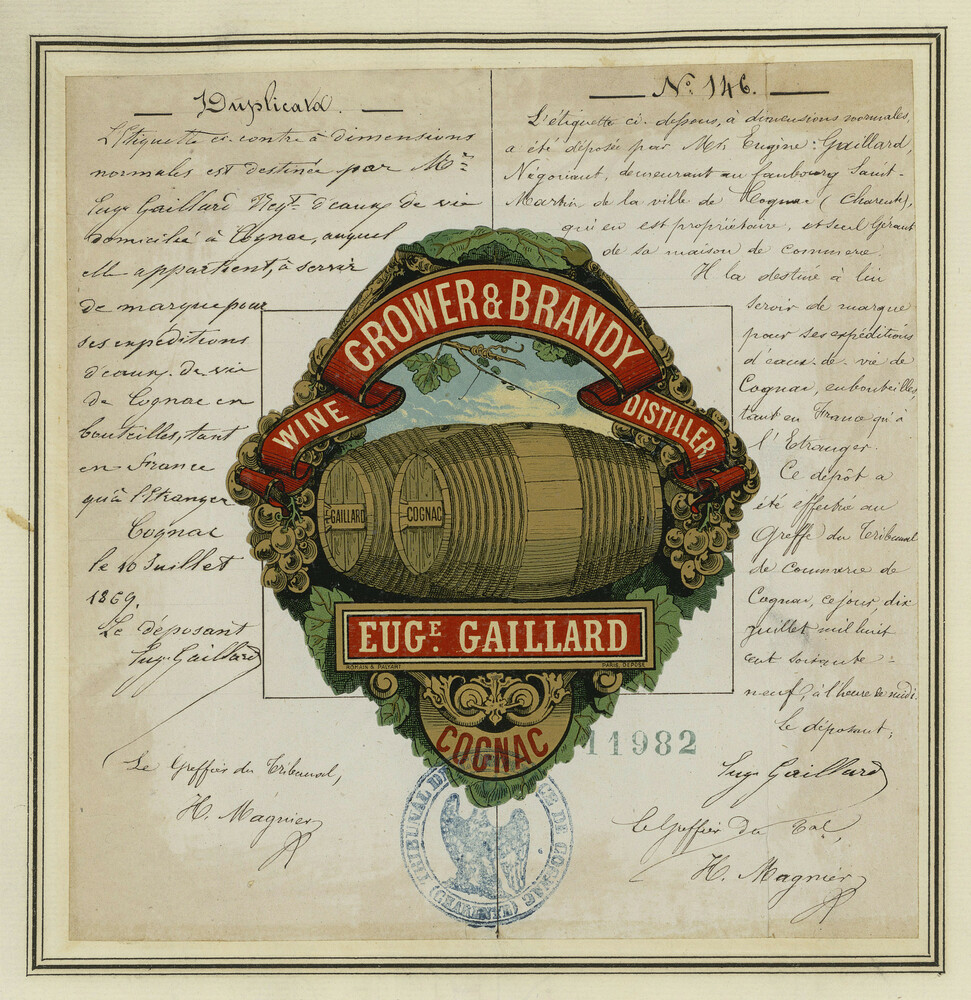 Duplicata.
L'étiquette ci-contre à dimensions
normales est destinée par Mr.
Eug. Gaillard Négt. d'eaux de vie
domicilié à Cognac, auquel
elle appartient, à servir
de marque pour
ses expéditions
d'eaux-de-vie
de Cognac en
bouteilles, tant
en France
qu'à l'Etranger
Cognac
le 10 Juillet
1869.
Le déposant
Eug. Gaillard
Le Greffier du Tribunal,
H. Magnier
No. 146.
L'étiquette ci-dessous, à dimensions normales,
a été déposée par Mr. Eugène Gaillard,
Négociant, demeurant au faubourg Saint-
Martin de la ville de Cognac (Charente),
qui en est propriétaire, et seul Gérant
de sa maison de commerce.
Il la destine à lui
servir de marque
pour ses expéditions
d'eaux-de-vie de
Cognac, en bouteilles,
tant en France qu'à
l'Etranger.
Ce dépôt a
été effectué au
Greffe du Tribunal
de Commerce de
Cognac, ce jour, dix
juillet mil huit
cent soixante-
neuf, à l'heure de midi.
Le déposant,
Eug. Gaillard
Le Greffier du Tal,
H. Magnier
WINE GROWER & BRANDY DISTILLER
GAILLARD
COGNAC
EUGE. GAILLARD
ROMAIN & PALYART
PARIS. DEPOSÉ
COGNAC
11982
TRIBUNAL DE COMMERCE DE COGNAC
(CHARENTE)